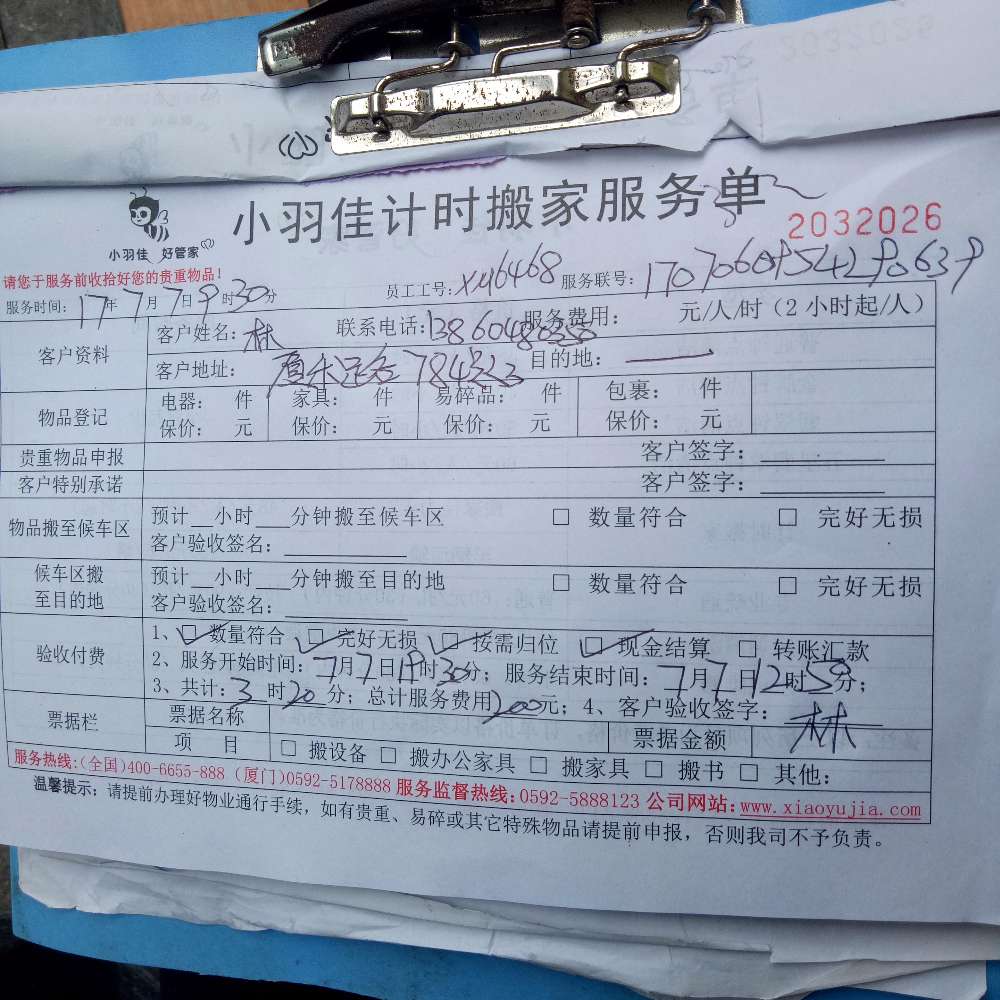 小羽佳 好管家
小羽佳计时搬家服务单
2032026
请您于服务前收拾好您的贵重物品!
服务时间: 17年7月7日9时30分 员工工号: XM6468 服务联号:
客户资料
客户姓名: 林 联系电话: 服务费用: 元/人/时(2小时起/人)
客户地址: 目的地: 一
物品登记
电器: 件 家具: 件 易碎品: 件 包裹: 件
保价: 元 保价: 元 保价: 元 保价: 元
贵重物品申报 客户签字:
客户特别承诺 客户签字:
物品搬至候车区
预计__小时___分钟搬至候车区 □ 数量符合 □ 完好无损
客户验收签名:
候车区搬至目的地
预计__小时___分钟搬至目的地 □ 数量符合 □ 完好无损
客户验收签名:
验收付费
1、☑ 数量符合 ☑ 完好无损 ☑ 按需归位 ☑ 现金结算 □ 转账汇款
2、服务开始时间: 7月7日 时30分; 服务结束时间: 7月7日12时50分;
3、共计: 3时20分; 总计服务费用200元; 4、客户验收签字: 林
票据栏
票据名称 票据金额
项 目 □ 搬设备 □ 搬办公家具 □ 搬家具 □ 搬书 □ 其他:
服务热线:(全国)400-6655-888 (厦门)0592-5178888 服务监督热线:0592-5888123 公司网站:www.xiaoyujia.com
温馨提示: 请提前办理好物业通行手续, 如有贵重、易碎或其它特殊物品请提前申报, 否则我司不予负责。